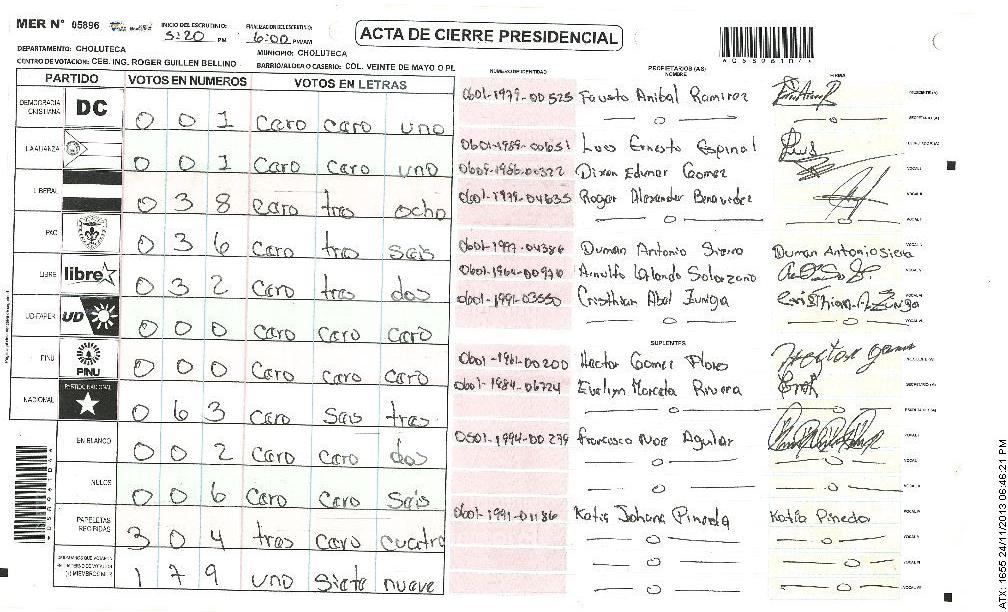 MER N° 05896 INICIO DEL ESCRUTINIO: 5:20 PM FINALIZACION DEL ESCRUTINIO: 6:00 PM/AM
ACTA DE CIERRE PRESIDENCIAL
DEPARTAMENTO: CHOLUTECA MUNICIPIO: CHOLUTECA
CENTRO DE VOTACION: CEB. ING. ROGER GUILLEN BELLINO BARRIO/ALDEA O CASERIO: COL. VEINTE DE MAYO O PL
PARTIDO VOTOS EN NUMEROS VOTOS EN LETRAS
DEMOCRACIA CRISTIANA DC 0 0 1 caro caro uno
LA ALIANZA 0 0 1 caro caro uno
LIBERAL 0 3 8 caro tres ocho
PAC 0 3 6 caro tres seis
LIBRE libre 0 3 2 caro tres dos
UD-FAPER UD 0 0 0 caro caro caro
PINU PINU 0 0 0 caro caro caro
NACIONAL PARTIDO NACIONAL 0 6 3 caro seis tres
EN BLANCO 0 0 2 caro caro dos
NULOS 0 0 6 caro caro seis
PAPELETAS RECIBIDAS 3 0 4 tres caro cuatro
(+) MIEMBROS MER 1 7 9 uno siete nueve
NUMERO DE IDENTIDAD PROPIETARIOS (AS) NOMBRE FIRMA
0601-1979-00525 Fausto Anibal Ramirez
0601-1989-00651 Luis Ernesto Espinal
Dixon Edumar Gomez
0601-1979-04635 Roger Alexander Benavidez
0601-1997-04386 Duman Antonio Sierra Duman Antonio Siera
Arnulfo Orlando Solorzano
0601-1991-03550 Cristhian Abel Zuniga
SUPLENTES
0601-1961-00200 Hector Gomez Flores
0601-1984-06724 Evelyn Marcela Rivera
0501-1994-00279 Francisco Noe Aguilar
0601-1991-01186 Katia Johana Pineda Katia Pineda
ATX: 1655 24/11/2013 06:46:21 PM